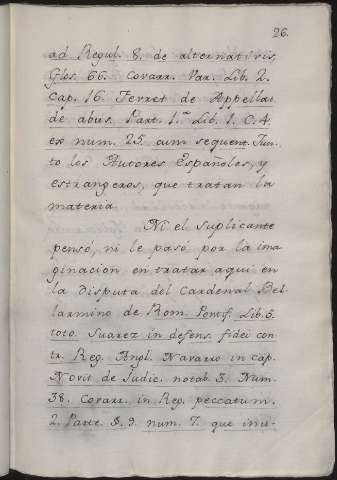 26.
ad Regul. 8. de alternativis,
Glos. 66. Covarr. Var. Lib. 2.
Cap. 16. Ferret de Appellat.
de abus. Part. 1.ª Lib. 1. C. 4.
ex num. 25. cum sequent. Jun-
to los Autores Españoles, y
estrangeros, que tratan la
materia.
Ni el suplicante
pensó, ni le pasó por la ima
ginacion en tratar aqui en
la disputa del Cardenal Bel
larmino de Rom. Pontif. Lib. 5.
toto. Suarez in defens. fidei con
tr. Reg. Angl. Navarro in cap.
Novit de Judic. notab. 3. Num.
38. Covarr. in Reg. peccatum.
2. Parte. §. 9. num. 7. que